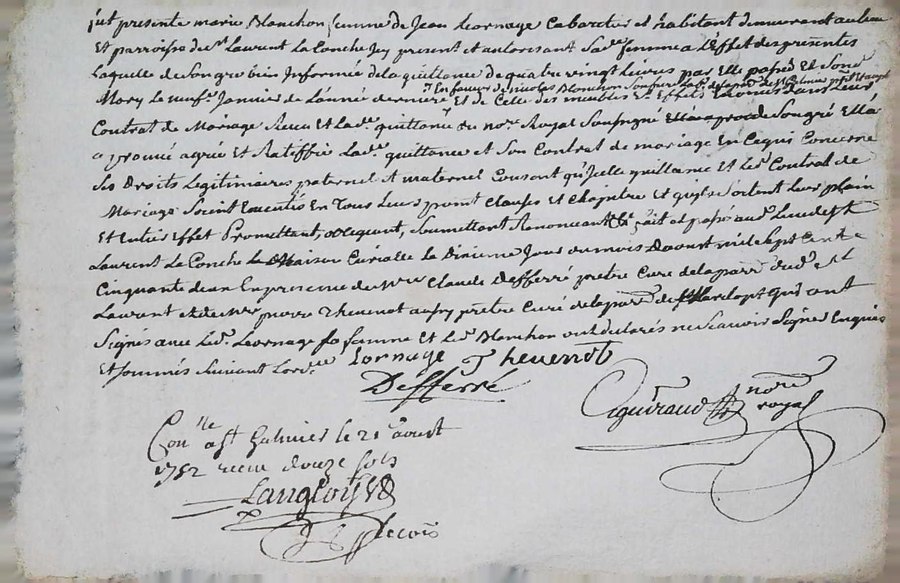 fut presente marie Blanchon femme de Jean Lornage Cabaretier et habitant demeurant au lieu
Et parroisse de st Laurent La Conche Icy present et autorisant Sade. femme a L'Effet des presentes
Laquelle de Son gre bien Informée de la quittance de quatre vingt Livres par Elle passée Et Sond.
Mary Le neufe. Janvier de L'année derniere En faveur de nicolas Blanchon Son pere Labr. de la par. de st Galmier
Et de Celle des meubles Et Effets Enoncés dans Leur
Contrat de Mariage Receu Et Lade. quittance du nore. Royal Soussigné de Son gré Ella
approuvé agréé Et Ratiffié Lade. quittance et Son Contrat de mariage En Ce qui Concerne
Ses Droits Legitimaires paternel et maternel Consent qu'Icelle quittance Et Led. Contrat de
Mariage Soient Executés En Tous Leurs point Clauses et Chapitre Et qu'ils Sortent Leur plain
Et Entier Effet Promettant, obligeant, Soumettant Renonceant &t fait et passé aud. Lieu de st
Laurent La Conche Maison Curialle Le Dixieme Jour du mois Daoust mil Sept Cent
Cinquante deux En presence de mre Claude Defferré pretre Curé de la parr. dud. st
Laurent et de mre pierre Thevenot aussy pretre Curé de la par. de qui ont
Signés avec Led. Lornage Sa femme et Le Blanchon ont declarés ne Scavoir Signer Enquis
Et Sommés Suivant Lordce.
Lornage Thevenot
Defferré
nore royal
Conlle a st Galmier le 21 aoust
1752 receu douze sols
Langlois